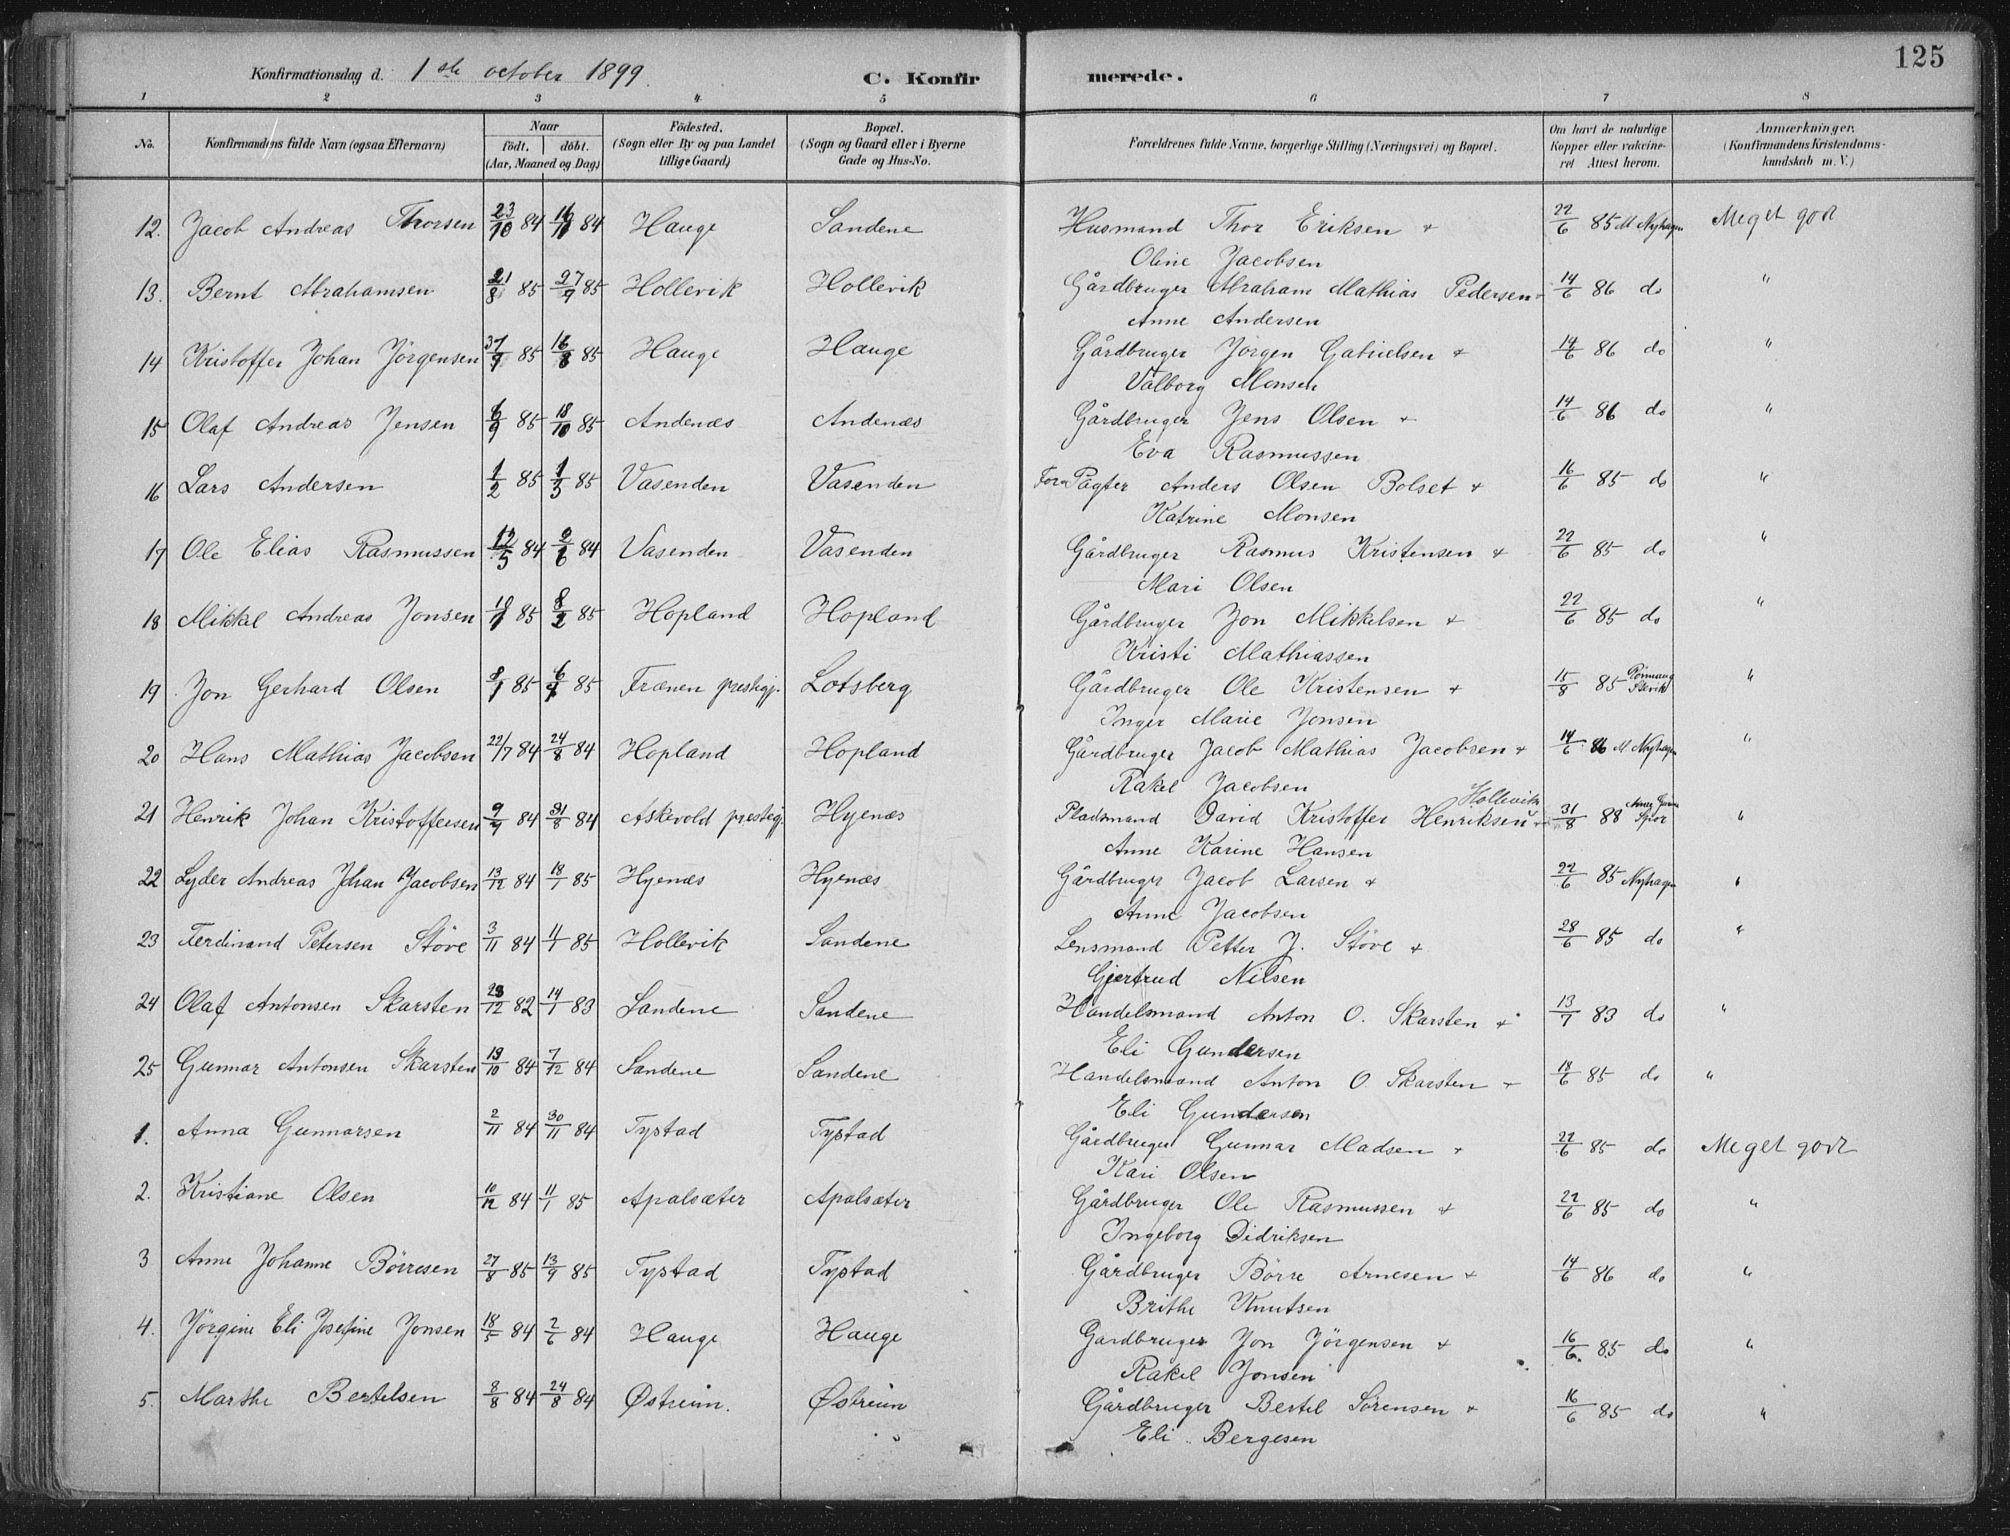 125
Konfirmationsdag d. 1ste october 1899. C. Konfirmerede.
1 2 3 4 5 6 7 8
No. Konfirmandens fulde Navn (ogsaa Efternavn) Naar födt. döbt. (Aar, Maaned og Dag) Födested. (Sogn eller By og paa Landet tillige Gaard) Bopæl. (Sogn og Gaard eller i Byerne Gade og Hus-No. Forældrenes fulde Navne, borgerlige Stilling (Næringsvei) og Bopæl. Om havt de naturlige Kopper eller vakcineret Attest herom. Anmærkninger. (Konfirmandens Kristendomskundskab m. V.)
12. Jacob Andreas Thorsen 23/10 84 16/11 84 Hauge Sandene Husmand Thor Eriksen + 22/6 85 M Nyhagen Meget godt
Oline Jacobsen
13. Bernt Abrahamsen 21/8 85 27/9 85 Hollevik Hollevik Gårdbruger Abraham Mathias Pedersen + 14/6 86 do "
Anne Andersen
14 Kristoffer Johan Jörgensen 85 16/8 85 Hauge Hauge Gårdbruger Jörgen Gabrielsen + 14/6 86 do "
Valborg Monsen
15 Olaf Andreas Jensen 6/9 85 18/10 85 Andenæs Andenæs Gårdbruger Jens Olsen + 14/6 86 do "
Eva Rasmussen
16 Lars Andersen 1/2 85 1/3 85 Vasenden Vasenden Pagter Anders Olsen Bolset + 16/6 85 do "
Katrine Monsen
17 Ole Elias Rasmussen 12/5 84 2/6 84 Vasenden Vasenden Gårdbruger Rasmus Kristensen + 22/6 85 do "
Mari Olsen
18 Mikkel Andreas Jonsen 85 8/2 85 Hopland Hopland Gårdbruger Jon Mikkelsen + 22/6 85 do "
Kristi Mathiassen
19 Jon Gerhard Olsen 8/1 85 85 Frænen prestegj. Lotsberg Gårdbruger Ole Kristensen + 15/8 85 "
Inger Marie Jonsen
20 Hans Mathias Jacobsen 22/7 84 24/8 84 Hopland Hopland Gårdbruger Jacob Mathias Jacobsen + 14/6 86 M Nyhagen "
Rakel Jacobsen
21 Henrik Johan Kristoffersen 84 31/8 84 Askevold prestegj. Hyenæs Pladsmand David Kristoffer Henriksen Hollevik + 31/8 88 "
Anne Karine Hansen
22 Lyder Andreas Johan Jacobsen 13/12 84 18/1 85 Hyenæs Hyenæs Gårdbruger Jacob Larsen + 22/6 85 Nyhagen "
Anne Jacobsen
23 Ferdinand Petersen Störe 3/11 84 11/1 85 Hollevik Sandene Lensmand Petter J. Störe + 28/6 85 do "
Gjertrud Nilsen
24 Olaf Antonsen Skarsten 28/12 82 14/1 83 Sandene Sandene Handelsmand Anton O. Skarsten + 13/7 83 do "
Eli Gundersen
25 Gunnar Antonsen Skarsten 19/10 84 7/12 84 Sandene Sandene Handelsmand Anton O. Skarsten + 85 do "
Eli Gundersen
1. Anna Gunnarsen 2/11 84 30/11 84 Tystad Tystad Gårdbruger Gunnar Madsen + 22/6 85 do Meget godt
Kari Olsen
2. Kristiane Olsen 10/12 84 11/1 85 Apalsæter Apalsæter Gårdbruger Ole Rasmussen + 22/6 85 do "
Ingeborg Didriksen
3 Anne Johanne Börresen 27/8 85 13/9 85 Tystad Tystad Gårdbruger Börre Arnesen + 14/6 86 do "
Brithe Knutsen
4. Jörgine Eli Josefine Jonsen 18/5 84 2/6 84 Hauge Hauge Gardbruger Jon Jörgensen + 16/6 85 do "
Rakel Jonsen
5. Marthe Bertelsen 8/8 84 24/8 84 Østreim. Østreim Gårdbruger Bertel Sörensen + 16/6 85 do "
Eli Bergesen